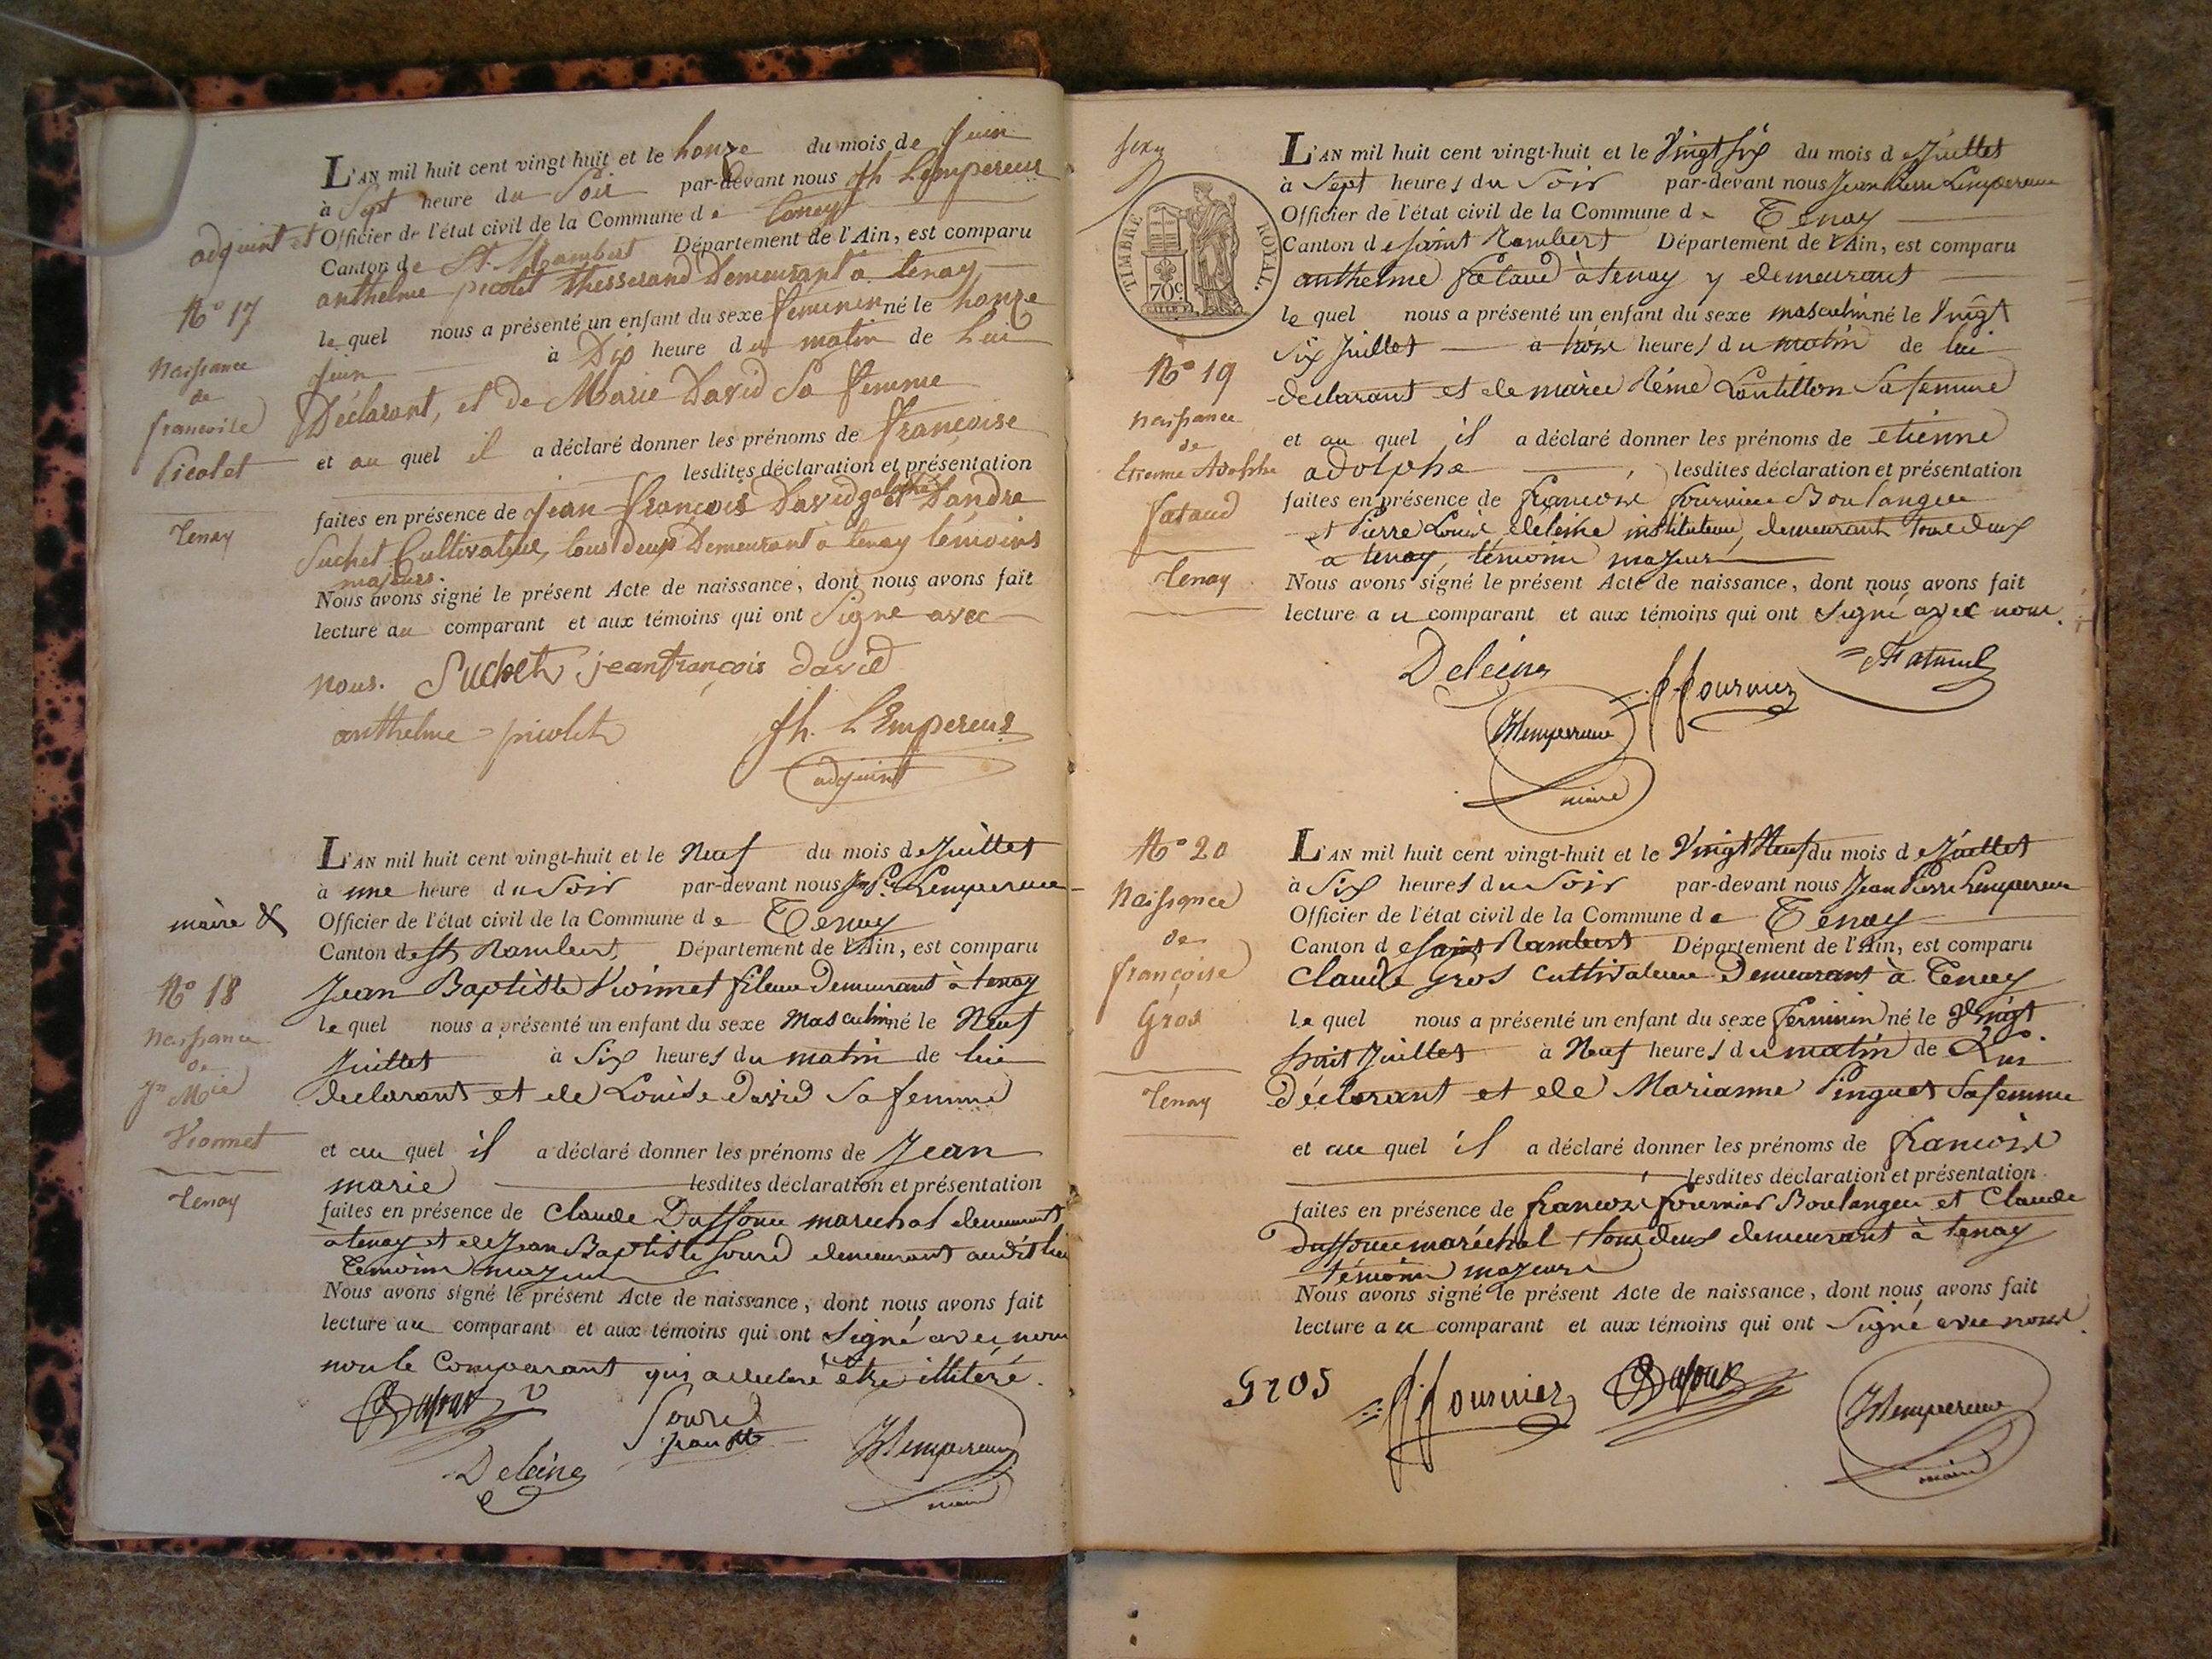 L'AN mil huit cent vingt-huit et le honze du mois de Juin
à Sept heure du Soir par-devant nous fh Lempereur
adjoint et Officier de l'état civil de la Commune de tenay
Canton de St. Rambert Département de l'Ain, est comparu
anthelme picolet thisserand Demeurant a tenay
le quel nous a présenté un enfant du sexe feminin né le honze
Juin à Dix heure du matin de Lui
Déclarant, et de Marie David Sa femme
et au quel il a déclaré donner les prénoms de françoise
lesdites déclaration et présentation
faites en présence de Jean françois David et Dandre
Suchet Cultivateur, tous deux Demeurant a tenay témoins
majeurs.
Nous avons signé le présent Acte de naissance, dont nous avons fait
lecture au comparant et aux témoins qui ont Signé avec
nous. Suchet jeanfrançois david
anthelme picolet fh. LEmpereur
adjoint
No 17
Naissance
de
francoise
Picolet
Tenay
L'AN mil huit cent vingt-huit et le Neuf du mois de Juillet
à une heure du Soir par-devant nous Jn Pre Lempereur
maire & Officier de l'état civil de la Commune de Tenay
Canton de St Rambert Département de l'Ain, est comparu
Jean Baptiste Vionnet fileur demeurant à tenay
le quel nous a présenté un enfant du sexe Masculin né le Neuf
Juillet à Six heures du matin de lui
declarant et de Louise david Sa femme
et au quel il a déclaré donner les prénoms de Jean
marie lesdites déclaration et présentation
faites en présence de Claude Duffour marechal demeurant
a tenay et de Jean Baptiste Sourd demeurant audit lieu
Temoins majeurs
Nous avons signé le présent Acte de naissance, dont nous avons fait
lecture au comparant et aux témoins qui ont Signé avec nous
non le Comparant qui a declaré être illitéré.
Sourd
Deleine
Lempereur
maire
No 18
Naissance
de
Jn Mie
Vionnet
Tenay
TIMBRE ROYAL.
70c
L'AN mil huit cent vingt-huit et le Vingt Six du mois de Juillet
à Sept heures du Soir par-devant nous Jean Pierre Lempereur
Officier de l'état civil de la Commune de Tenay
Canton de Saint Rambert Département de l'Ain, est comparu
anthelme fataud à tenay y demeurant
le quel nous a présenté un enfant du sexe masculin né le Vingt
Six Juillet a trois heures du matin de lui
declarant et de marie Réme Lantillon Sa femme
et au quel il a déclaré donner les prénoms de etienne
adolphe lesdites déclaration et présentation
faites en présence de francois fournier Boulanger
et Pierre Louis deleine instituteur, demeurant tous deux
a tenay, témoins majeurs
Nous avons signé le présent Acte de naissance, dont nous avons fait
lecture au comparant et aux témoins qui ont Signé avec nous.
Deleine f fournier Fataud
Lempereur
maire
No 19
naissance
de
Etienne Adolphe
fataud
Tenay
L'AN mil huit cent vingt-huit et le Vingt Neuf du mois de Juillet
à Six heures du Soir par-devant nous Jean Pierre Lempereur
Officier de l'état civil de la Commune de Tenay
Canton de Saint Rambert Département de l'Ain, est comparu
Claude Gros Cultivateur Demeurant à Tenay
le quel nous a présenté un enfant du sexe feminin né le Vingt
huit Juillet à Neuf heures du matin de Lui
Déclarant et de Marianne Pinguet Sa femme
et au quel il a déclaré donner les prénoms de francoise
lesdites déclaration et présentation
faites en présence de francois fournier Boulanger et Claude
Duffour maréchal tous deux demeurant à tenay
témoins majeurs
Nous avons signé le présent Acte de naissance, dont nous avons fait
lecture au comparant et aux témoins qui ont Signé avec nous.
Gros f fournier Dufour Lempereur
maire
No 20
Naissance
de
françoise
Gros
Tenay